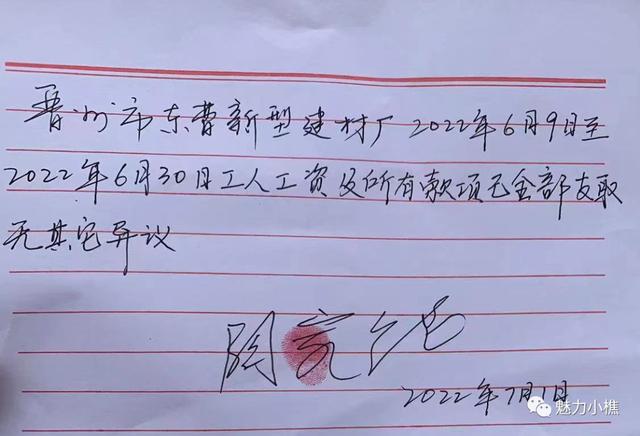 晋州市东曹新型建材厂 2022年6月9日至
2022年6月30日工人工资及所有款项已全部支取
无其它异议
2022年7月1日
魅力小樵